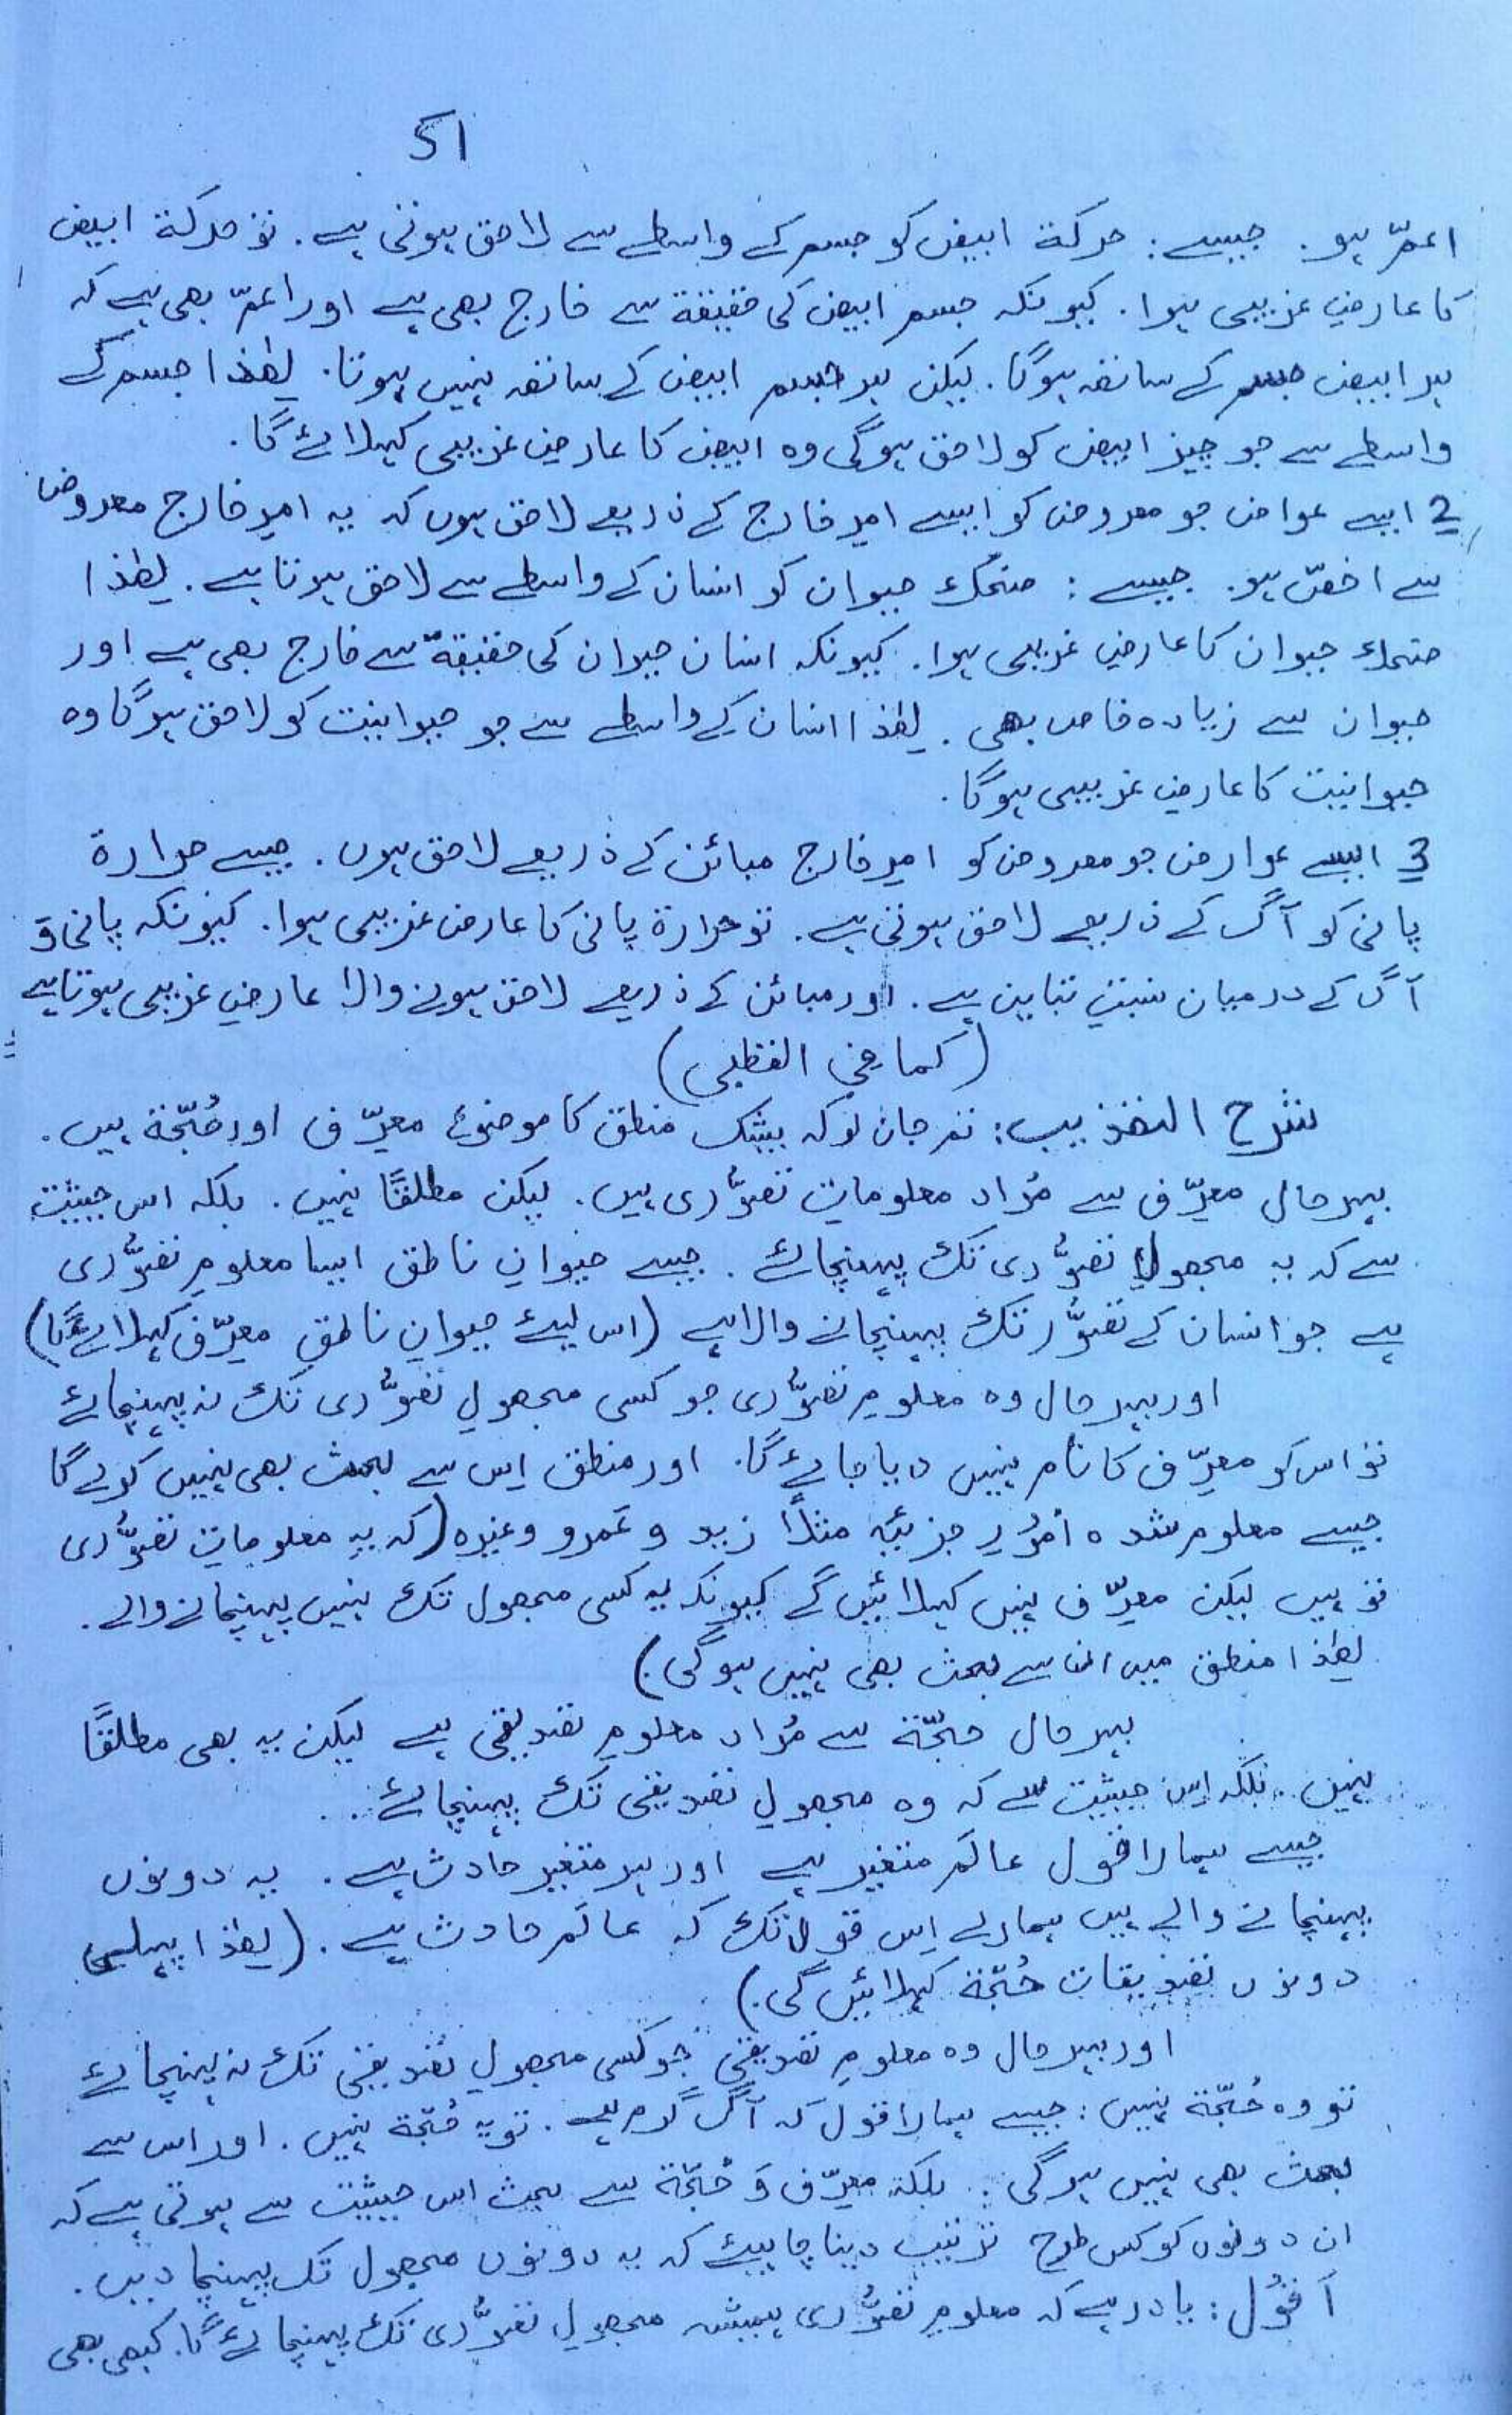 51
اعمّ ہو. جیسے: حرکة ابیض کو جسم کے واسطے سے لاحق ہوتی ہے. تو حرکة ابیض
کا عارضِ غریبی ہوا. کیونکہ جسم ابیض کی حقیقة سے خارج بھی ہے اور اعمّ بھی ہے کہ
ہر ابیض جسم کے ساتھ ہوگا. لیکن ہر جسم ابیض کے ساتھ نہیں ہوتا. لھٰذا جسم کے
واسطے سے جو چیز ابیض کو لاحق ہوگی وہ ابیض کا عارضِ غریبی کہلائے گا.
2 ایسے عوارض جو معروض کو ایسے امرِ خارج کے ذریعے لاحق ہوں کہ یہ امرِ خارج معروض
سے اخصّ ہو. جیسے: ضحک حیوان کو انسان کے واسطے سے لاحق ہوتا ہے. لھٰذا
ضحک حیوان کا عارضِ غریبی ہوا. کیونکہ انسان حیوان کی حقیقة سے خارج بھی ہے اور
حیوان سے زیادہ خاص بھی. لھٰذا انسان کے واسطے سے جو حیوانیت کو لاحق ہوگا وہ
حیوانیت کا عارضِ غریبی ہوگا.
3 ایسے عوارض جو معروض کو امرِ خارج مبائن کے ذریعے لاحق ہوں. جیسے حرارة
پانی کو آگ کے ذریعے لاحق ہوتی ہے. تو حرارة پانی کا عارضِ غریبی ہوا. کیونکہ پانی وَ
آگ کے درمیان نسبتِ تباین ہے. اور مبائن کے ذریعے لاحق ہونے والا عارضِ غریبی ہوتا ہے
(کما فی القطبی)
شرح التھذیب: تم جان لو کہ بیشک منطق کا موضوع معرِّف اور حُجّة ہیں.
بہرحال معرِّف سے مُراد معلوماتِ تصوُّری ہیں. لیکن مطلقًا نہیں. بلکہ اس حیثیت
سے کہ یہ مجھولِ تصوُّری تک پہنچائے. جیسے حیوانِ ناطق ایسا معلومِ تصوُّری
ہے جو انسان کے تصوُّر تک پہنچانے والا ہے (اس لیئے حیوانِ ناطق معرِّف کہلائے گا)
اور بہرحال وہ معلومِ تصوُّری جو کسی مجھولِ تصوُّری تک نہ پہنچائے
تو اس کو معرِّف کا نام نہیں دیا جائے گا. اور منطق اس سے بحث بھی نہیں کرے گا
جیسے معلوم شدہ اُمُورِ جزئیّہ مثلاً زید و عَمرو وغیرہ (کہ یہ معلوماتِ تصوُّری
تو ہیں لیکن معرِّف نہیں کہلائیں گے کیونکہ یہ کسی مجھول تک نہیں پہنچانے والے.
لھٰذا منطق میں ان سے بحث بھی نہیں ہوگی.)
بہرحال حجّة سے مُراد معلومِ تصدیقی ہے لیکن یہ بھی مطلقًا
نہیں. بلکہ اِس حیثیت سے کہ وہ مجھولِ تصدیقی تک پہنچائے..
جیسے ہمارا قول عالَم متغیر ہے اور ہر متغیر حادث ہے. یہ دونوں
پہنچانے والے ہیں ہمارے اِس قول تک کہ عالَم حادث ہے. (لھٰذا پہلے
دونوں تصدیقات حُجّة کہلائیں گی.)
اور بہرحال وہ معلومِ تصدیقی جو کسی مجھولِ تصدیقی تک نہ پہنچائے
تو وہ حُجّة نہیں: جیسے ہمارا قول کہ آگ گرم ہے. تو یہ حُجّة نہیں. اور اس سے
بحث بھی نہیں ہوگی. بلکہ معرِّف وَ حُجّة سے بحث اس حیثیت سے ہوتی ہے کہ
ان دونوں کو کس طرح ترتیب دینا چاہیئے کہ یہ دونوں مجھول تک پہنچا دیں.
اَقُول: یاد رہے کہ معلومِ تصوُّری ہمیشہ مجھولِ تصوُّری تک پہنچائے گا. کبھی بھی